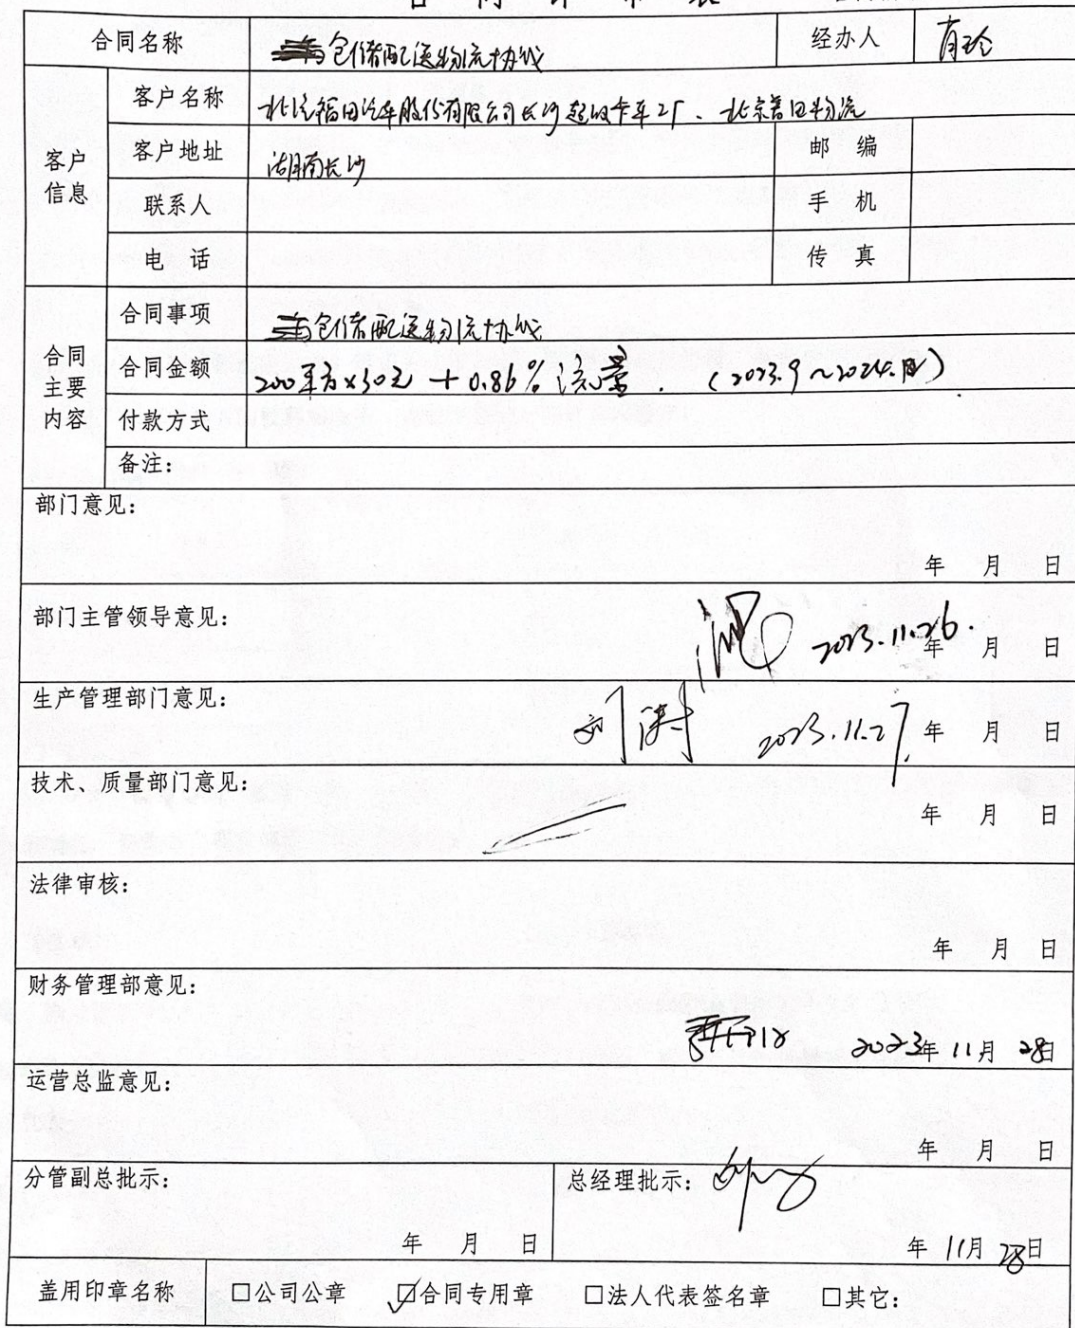 合同名称 仓储配送物流协议 经办人 肖玲
客户信息
客户名称 北汽福田汽车股份有限公司长沙超级卡车工厂、北京普田物流
客户地址 湖南长沙 邮 编
联系人 手 机
电 话 传 真
合同主要内容
合同事项 仓储配送物流协议
合同金额 200平方×30元 + 0.86% 流量. (2023.9～2024.
付款方式
备注:
部门意见:
年 月 日
部门主管领导意见:
2023.11.26.
年 月 日
生产管理部门意见:
刘 2023.11.27 年 月 日
技术、质量部门意见:
年 月 日
法律审核:
年 月 日
财务管理部意见:
2023年 11月 28日
运营总监意见:
年 月 日
分管副总批示:
年 月 日
总经理批示:
年 11月 28日
盖用印章名称 □公司公章 ☑合同专用章 □法人代表签名章 □其它: